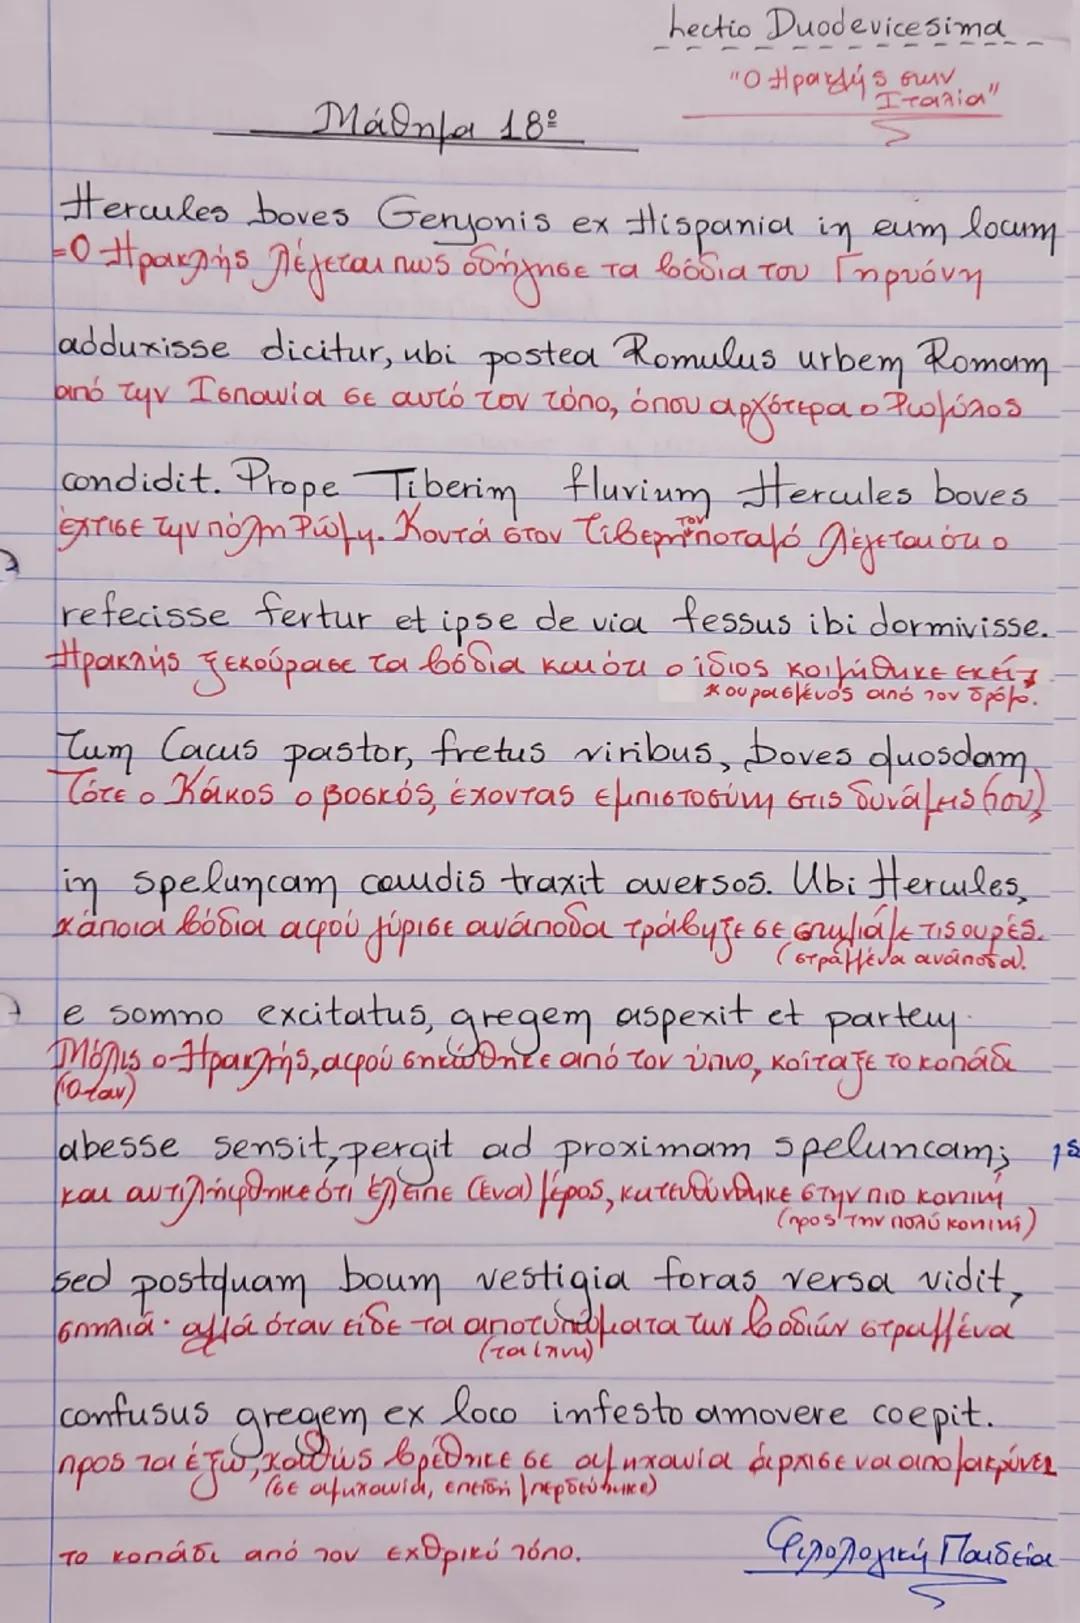 Lectio Duodevicesima
"Ο Ηρακλής στην
Ιταλία"
Μάθημα 18º
Hercules boves Geryonis ex Hispania in eum locum
=Ο Ηρακλής λέγεται πως οδήγησε τα βόδια του Γηρυόνη
adduxisse dicitur, ubi postea Romulus urbem Romam
από την Ισπανία σε αυτό τον τόπο, όπου αργότερα ο Ρωμύλος
condidit. Prope Tiberim fluvium Hercules boves
έχτισε την πόλη Ρώμη. Κοντά στον Τίβερη τον ποταμό λέγεται ότι ο
refecisse fertur et ipse de via fessus ibi dormivisse.
Ηρακλής ξεκούρασε τα βόδια και ότι ο ίδιος κοιμήθηκε εκεί,
κουρασμένος από τον δρόμο.
Tum Cacus pastor, fretus viribus, boves quosdam
Τότε ο Κάκος ο βοσκός, έχοντας εμπιστοσύνη στις δυνάμεις (του),
in speluncam caudis traxit aversos. Ubi Hercules,
κάποια βόδια αφού γύρισε ανάποδα τράβηξε σε σπηλιά με τις ουρές.
(στραμμένα ανάποδα).
e somno excitatus, gregem aspexit et partem
Μόλις ο Ηρακλής, αφού σηκώθηκε από τον ύπνο, κοίταξε το κοπάδι
(Όταν)
abesse sensit, pergit ad proximam speluncam;
και αντιλήφθηκε ότι έλειπε (ένα) μέρος, κατευθύνθηκε στην πιο κοντινή
(προς την πολύ κοντινή)
sed postquam boum vestigia foras versa vidit,
σπηλιά· αλλά όταν είδε τα αποτυπώματα των βοδιών στραμμένα
(τα ίχνη)
confusus gregem ex loco infesto amovere coepit.
προς τα έξω, καθώς βρέθηκε σε αμηχανία άρχισε να απομακρύνει
(σε αμηχανία, επειδή μπερδεύτηκε)
το κοπάδι από τον εχθρικό τόπο.
Φιλολογική Παιδεία